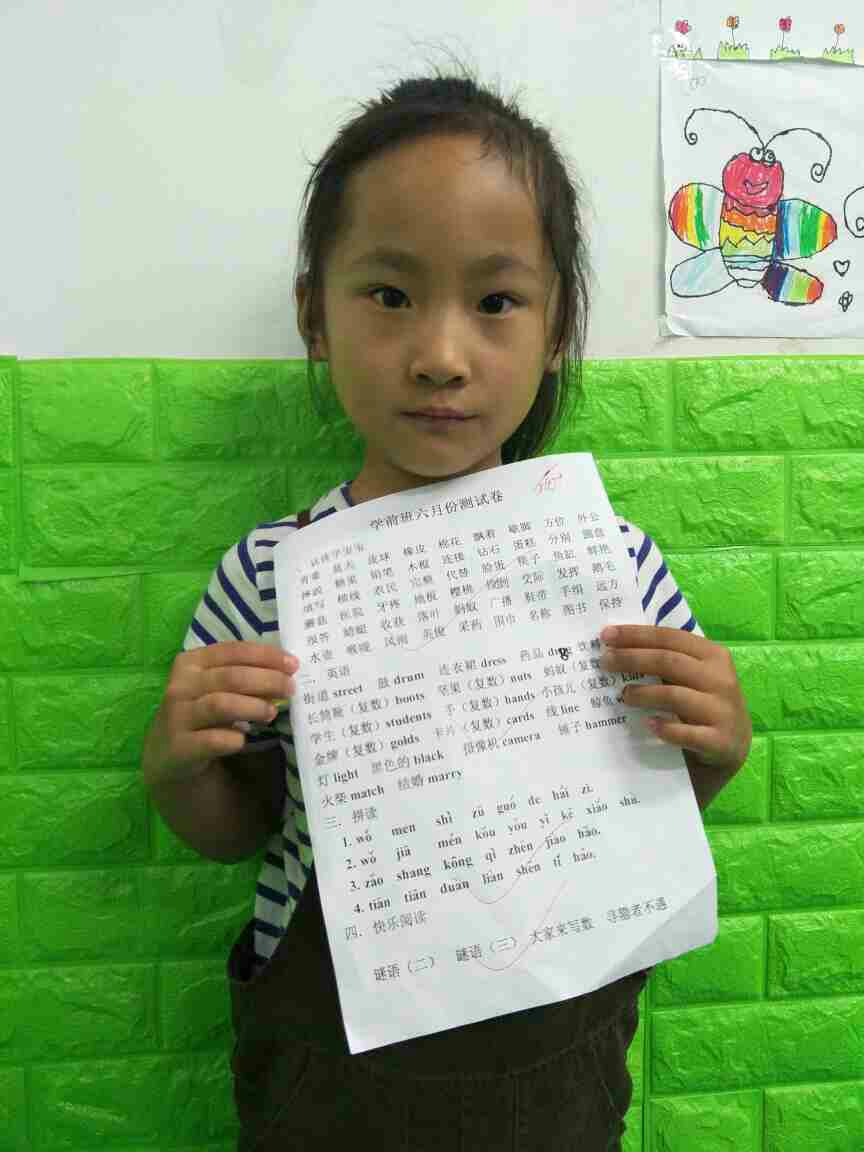 学前班六月份测试卷
橡皮 棉花 飘着 噼啪 方位 外公
青菜 蓝天 皮球 木板 连接 钻石 蛋糕 分别 圆盘
糖果 铅笔 穴位 代替 脸蛋 筷子 鱼缸 鲜艳
填写 横线 农民 地板 樱桃 检测 交际 发挥 鹅毛
蘑菇 医院 牙疼 落叶 蚂蚁 广播 鞋带 手绢 远方
报答 蜻蜓 收获 英俊 采药 围巾 名称 图书 保持
水壶 喉咙 风雨
二、英语
街道 street 鼓 drum 连衣裙 dress 药品 drug 饮料
长筒靴（复数）boots 坚果（复数）nuts 蚂蚁（复数）
学生（复数）students 手（复数）hands 小孩儿（复数）kids
金牌（复数）golds 卡片（复数）cards 线 line 鲸鱼
灯 light 黑色的 black 摄像机 camera 锤子 hammer
火柴 match 结婚 marry
三、拼读
1. wǒ men shì zǔ guó de hái zi.
2. wǒ jiā mén kǒu yǒu yì kē xiǎo shù.
3. zǎo shang kōng qì zhēn jiào hǎo.
4. tiān tiān duàn liàn shēn tǐ hǎo.
四．快乐阅读
谜语（二） 谜语（三） 大家来写数 寻隐者不遇